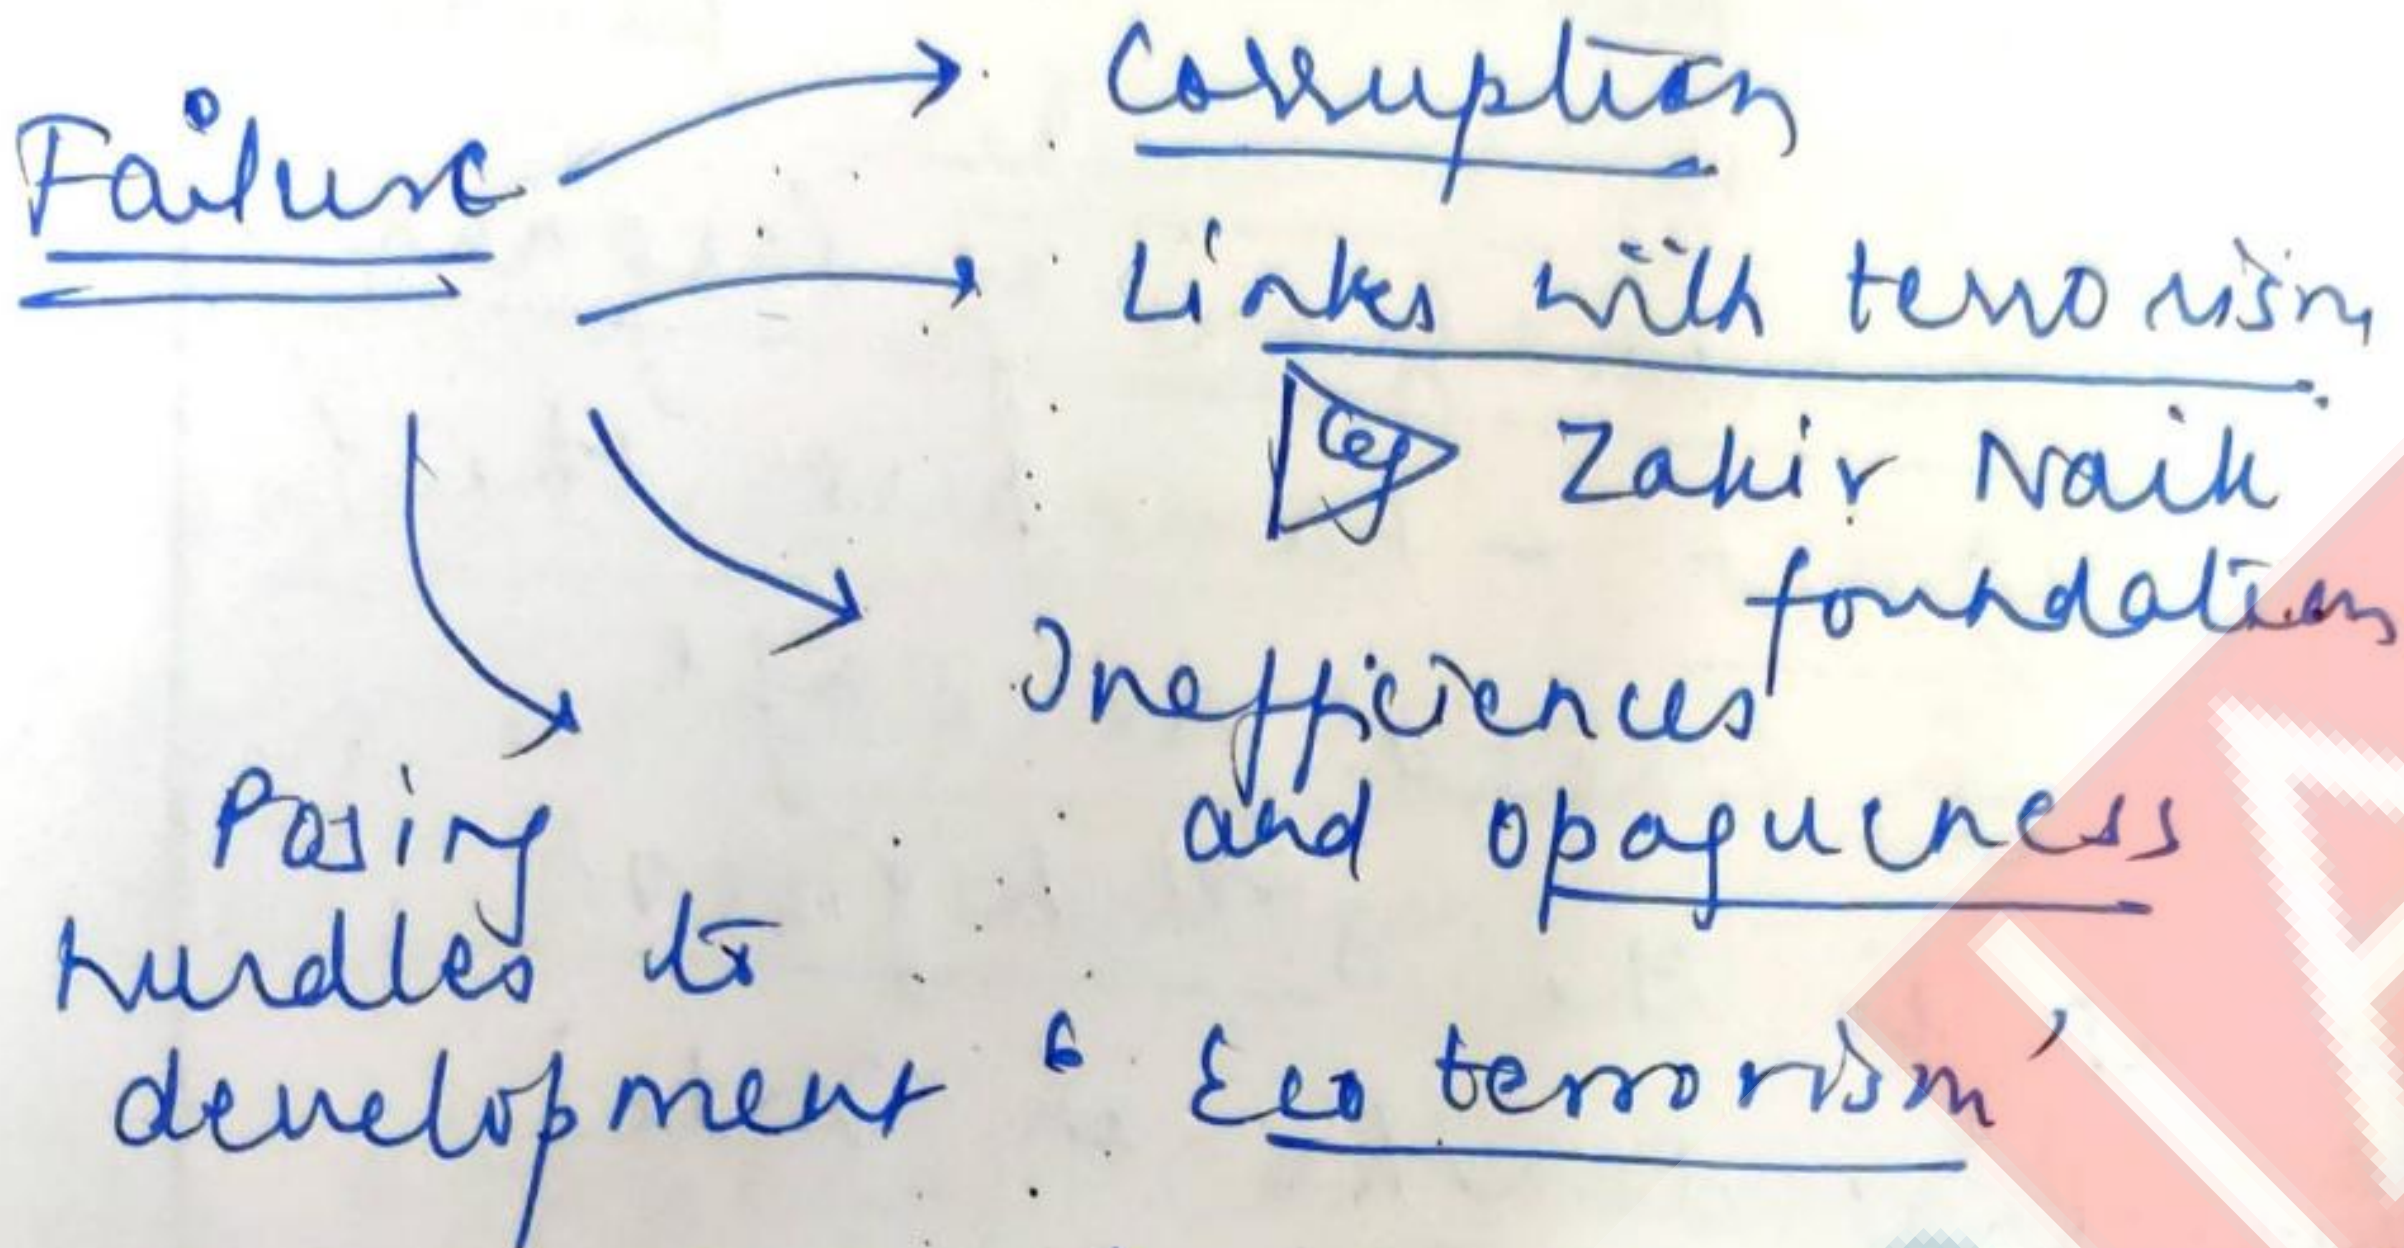 Failure
Corruption
Links with terrorism
eg Zakir Naik
foundation
Inefficiences
and opaqueness
Posing
hurdles to
development 'Eco terrorism'
IA